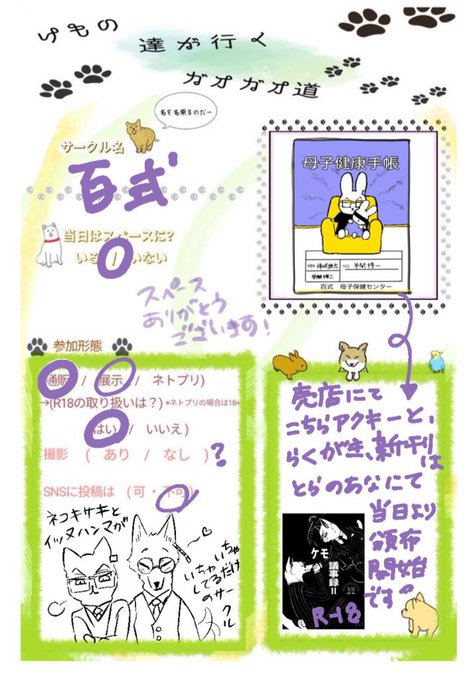 けもの
達が行く
ガオガオ道
名を名乗るのだー
サークル名
百式
当日はスペースに?
いる / いない
スペース
ありがとう
ございます!
母子健康手帳
百式 母子保健センター
参加形態
通販 / 展示 / ネトプリ)
→(R18の取り扱いは? *ネトプリの場合は18*
はい / いいえ)
撮影 ( あり / なし )?
SNSに投稿は (可・不可)
ネコキサキと
イッヌハンマが
いちゃいちゃ
してるだけ
のサークル
売店にて
こちらアクキーと、
らくがき、新刊は
とらのあなにて
当日より
頒布
開始
です
ケモ
議事録II
R-18